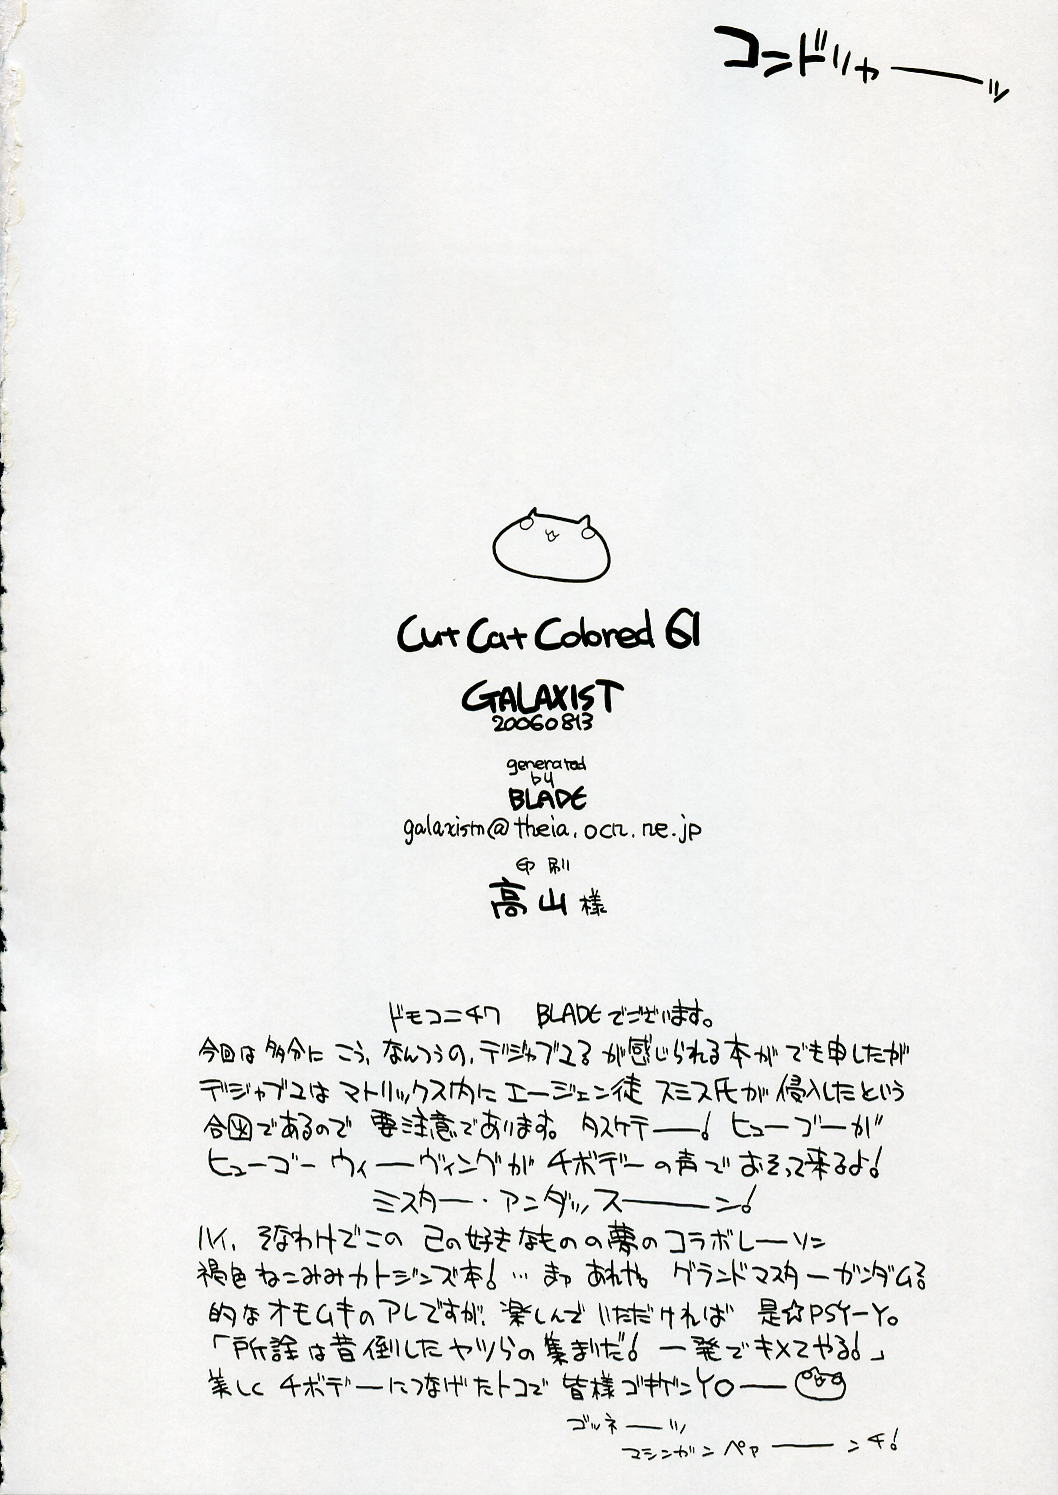 コンドリャーーッ
Cut Cat Colored 61
GALAXIST
20060813
generated
by
BLADE
galaxistn@theia.ocn.ne.jp
印刷
高山様
ドモコニチワ BLADEでございます。
今回は多分に こう、なんつうの、デジャブュる が感じられる本が でも申したが
デジャブュは マトリックス内に エージェン徒 スミス氏が 侵入したという
合図であるので 要注意であります。 タスケテーー! ヒューゴーが
ヒューゴー ウィーーヴィングが チボデーの声で おそって来るよ!
ミスター・アンダッスーーーン!
ハイ、 そなわけでこの 己の好きなものの夢のコラボレーーソン
褐色ねこみみカトジンズ本! … まァ あれや。 グランドマスターガンダムる
的なオモムキのアレですが、楽しんで いただければ 是☆PSY-Y。
「所詮は昔倒したヤツらの集まりだ! 一発でキメてやる!」
美しく チボデーにつなげたトコで 皆様ゴキゲンYOーー
ゴルネーーッ
マシンガンペァーーーンチ!